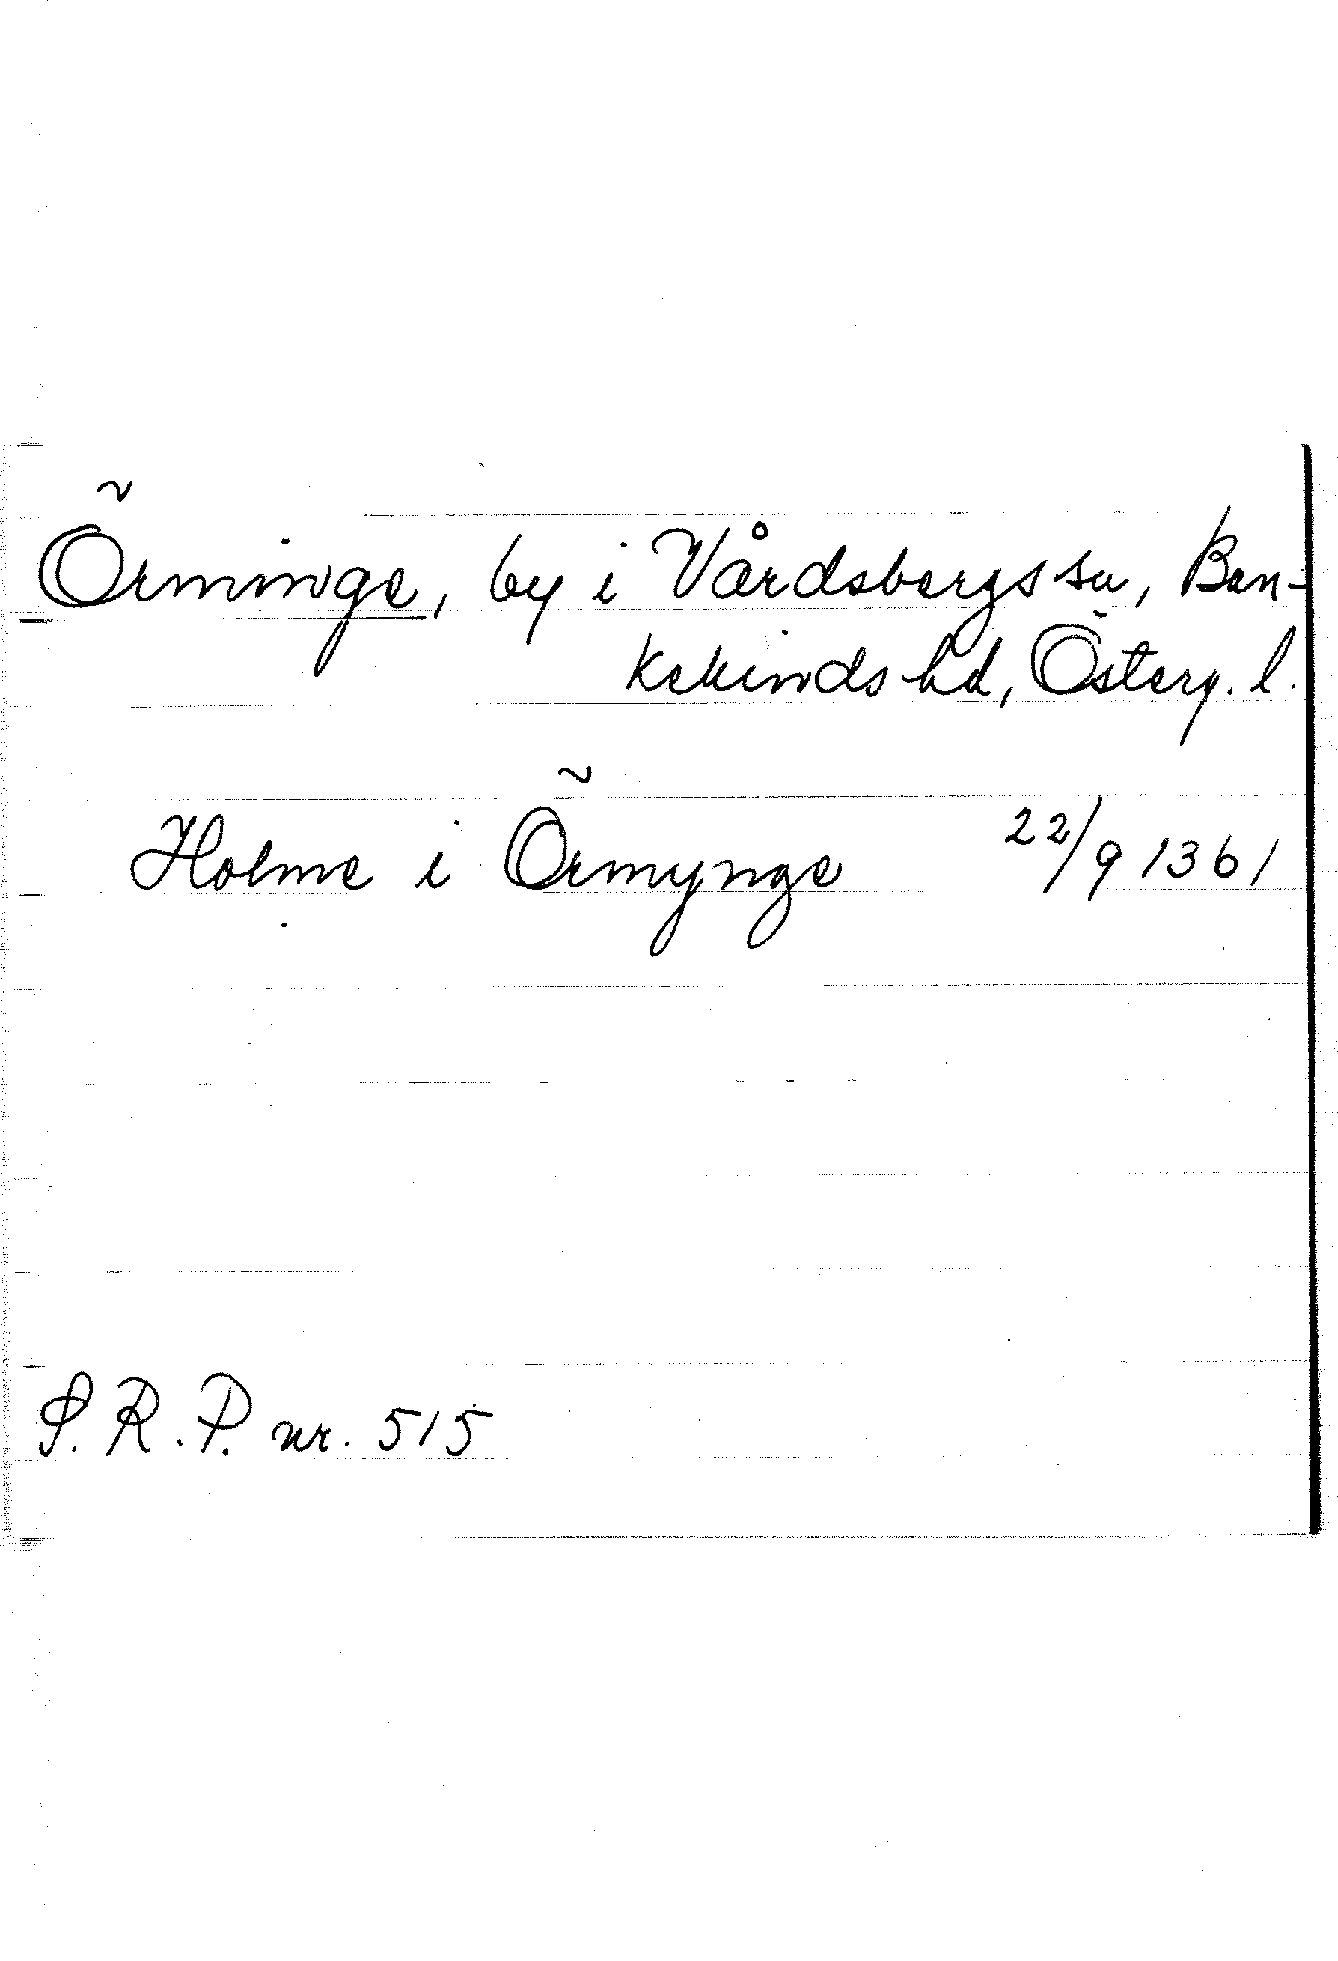 Örminge, by i Vårdsbergs sn, Ban-
kekinds hd, Österg. l.
Holme i Örmynge 22/9 1361
S. R. P. nr. 515